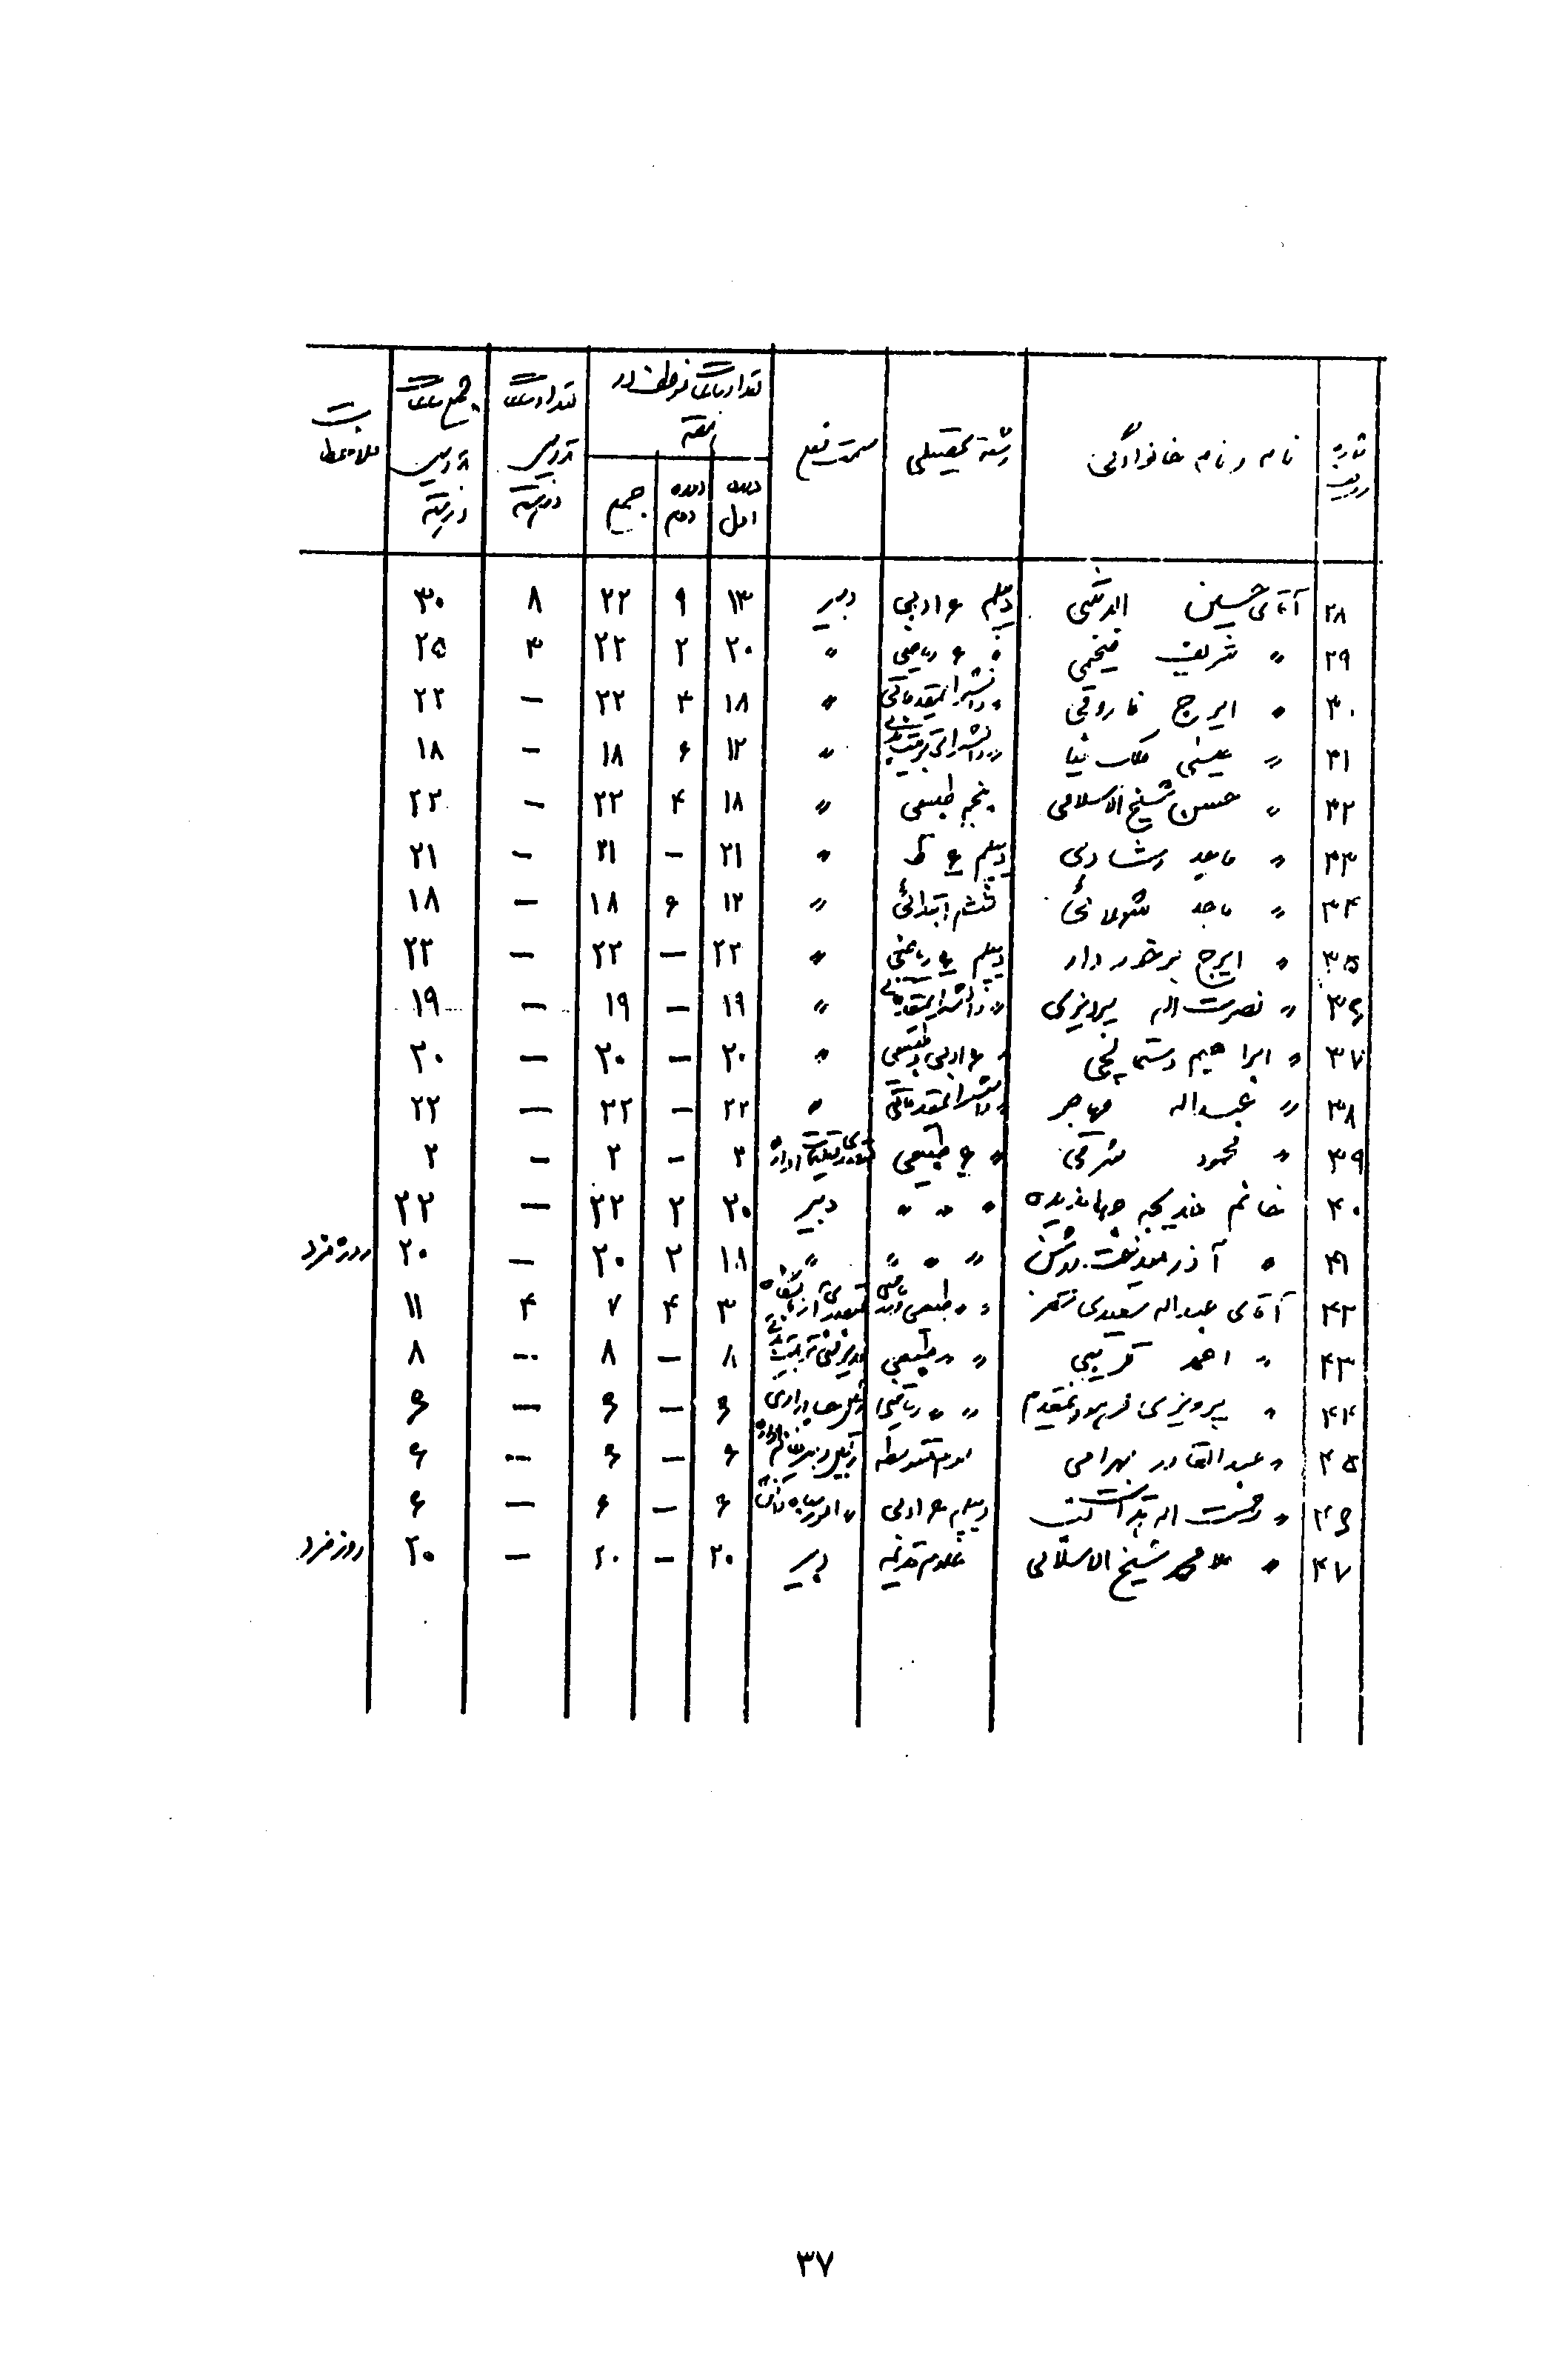 شماره ردیف نام و نام خانوادگی رشته تحصیلی سمت فعلی تعداد ساعات موظف در هفته تعداد ساعات تدریس در هفته جمع ساعات تدریس در هفته ملاحظات
دوره اول دوره دوم جمع
۲۸ آقای حسین دیپلم ۶ ادبی دبیر ۱۳ ۹ ۲۲ ۸ ۳۰
۲۹ " شریف فتحی " ۶ ریاضی " ۲۰ ۲ ۲۲ ۳ ۲۵
۳۰ " ایرج فاروقی " دانشسرای مقدماتی " ۱۸ ۴ ۲۲ – ۲۲
۳۱ " عیسی ملک نیا " دانشسرای تربیت بدنی " ۱۲ ۶ ۱۸ – ۱۸
۳۲ " حسن شیخ الاسلامی پنجم طبیعی " ۱۸ ۴ ۲۲ – ۲۲
۳۳ " ماجد رشادی دیپلم ۶ " ۲۱ – ۲۱ – ۲۱
۳۴ " ماجد ششم ابتدائی " ۱۲ ۶ ۱۸ – ۱۸
۳۵ " ایرج برخوردار دیپلم ۶ ریاضی " ۲۲ – ۲۲ – ۲۲
۳۶ " نصرت اله پرویزی " دانشسرای مقدماتی " ۱۹ – ۱۹ – ۱۹
۳۷ " ابراهیم دستمالچی " ۶ ادبی و طبیعی " ۲۰ – ۲۰ – ۲۰
۳۸ " عبداله مهاجر " دانشسرای مقدماتی " ۲۲ – ۲۲ – ۲۲
۳۹ " محمود شرکی " ۶ طبیعی اداره ۲ – ۲ – ۲
۴۰ خانم خدیجه جهاندیده " " " دبیر ۲۰ ۲ ۲۲ – ۲۲
۴۱ " آذرمیدخت روشن " " " " ۱۸ ۲ ۲۰ – ۲۰ روزمزد
۴۲ آقای عبداله سعیدی " " طبیعی متصدی آزمایشگاه ۳ ۴ ۷ ۴ ۱۱
۴۳ " احمد غریبی " " طبیعی تربیت بدنی ۸ – ۸ – ۸
۴۴ " پرویزی فرمودمقدم " " ریاضی اداری ۶ – ۶ – ۶
۴۵ " عبدالقادر بهرامی سوم متوسطه ۶ – ۶ – ۶
۴۶ " رحمت اله دیپلم ۶ ادبی " ۶ – ۶ – ۶
۴۷ " ملا محمد شیخ الاسلامی علوم قدیمه دبیر ۲۰ – ۲۰ – ۲۰ روزمزد
۳۷